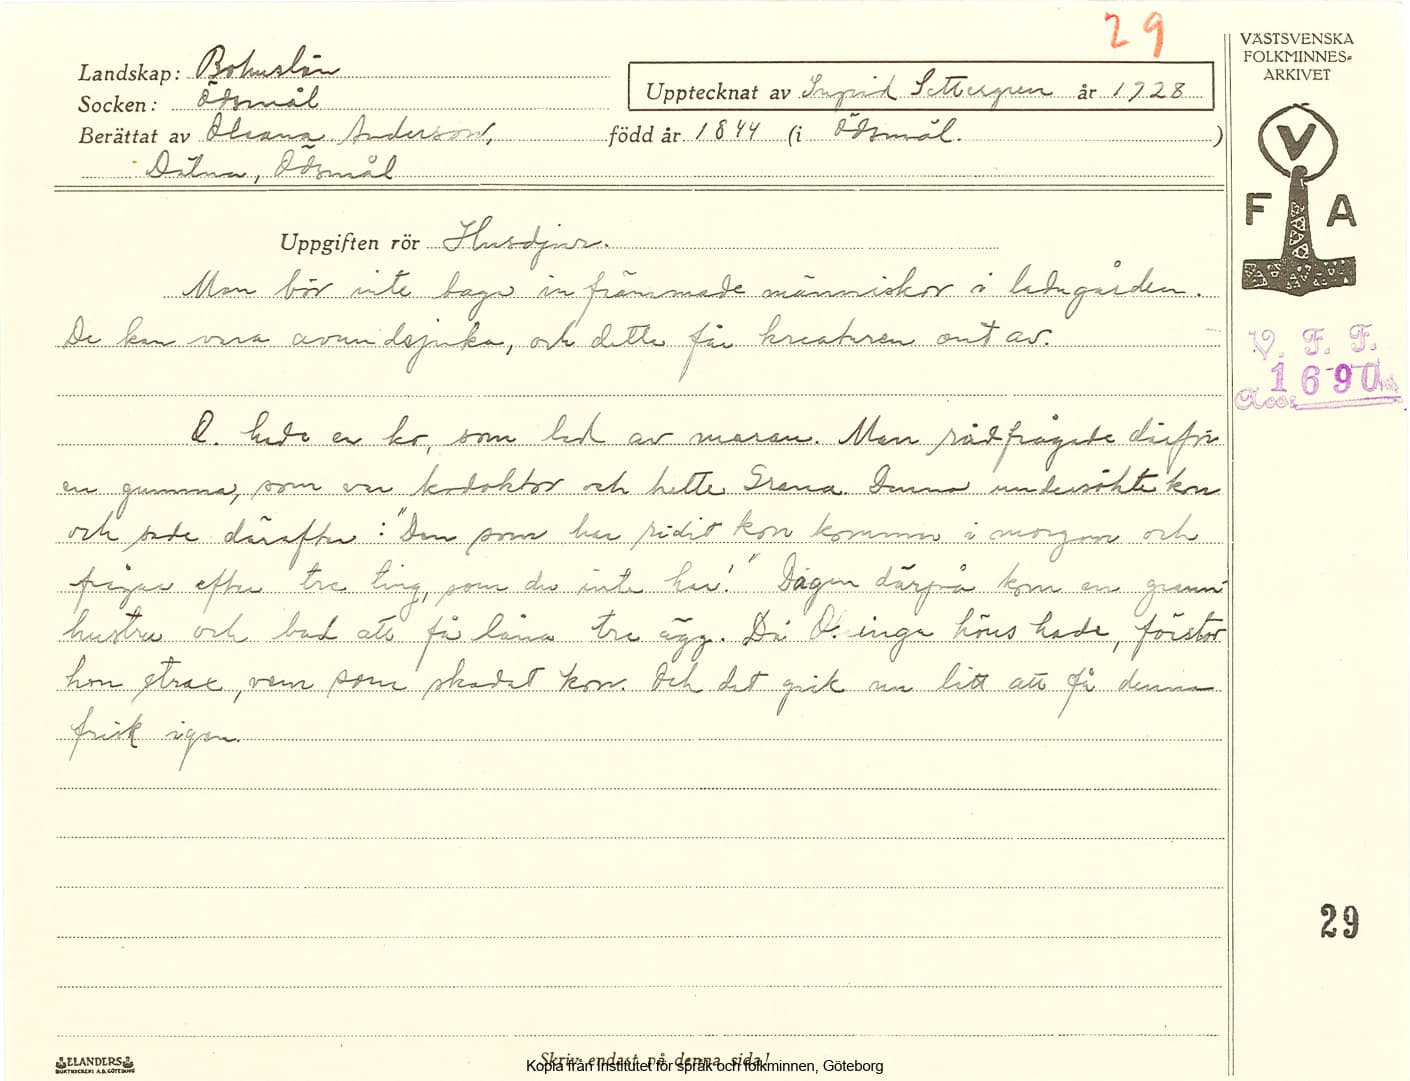 29
VÄSTSVENSKA
FOLKMINNES-
ARKIVET
Landskap: Bohuslän
Socken: Ödsmål
Upptecknat av Ingrid Settergren år 1928
Berättat av Oleana Anderson, född år 1844 (i Ödsmål. )
Dalen, Ödsmål
V
F A
Uppgiften rör Husdjur.
Man bör inte taga in främmade människor i ladugården.
De kan vara avundsjuka, och detta får kreaturen ont av.
V. F. F.
1690
Acc.
O. hade en ko, som led av maran. Man rådfrågade därför
en gumma, som var kodoktor och hette Grana. Denna undersökte kon
och sade därefter: "Den som har ridit kon kommer i morgon och
frågar efter tre ting, som du inte har!" Dagen därpå kom en grann-
hustru och bad att få låna tre ägg. Då O. inga höns hade, förstod
hon strax, vem som skadat kon. Och det gick nu lätt att få denna
frisk igen.
29
ELANDERS
BOKTRYCKERI A.B. GÖTEBORG
Skriv endast på denna sida!
Kopia från Institutet för språk och folkminnen, Göteborg